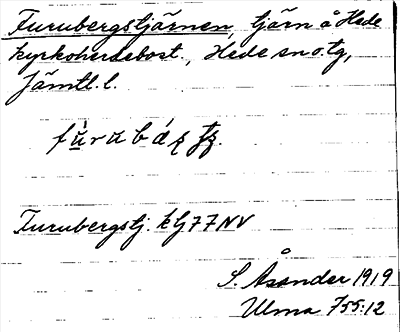 Furubergstjärnen, tjärn å Hede
kyrkoherdebost., Hede sn o. tg,
Jämtl. l.
Furubergstj. kbl 77 NV
S. Åsander 1919
Ulma 755:12